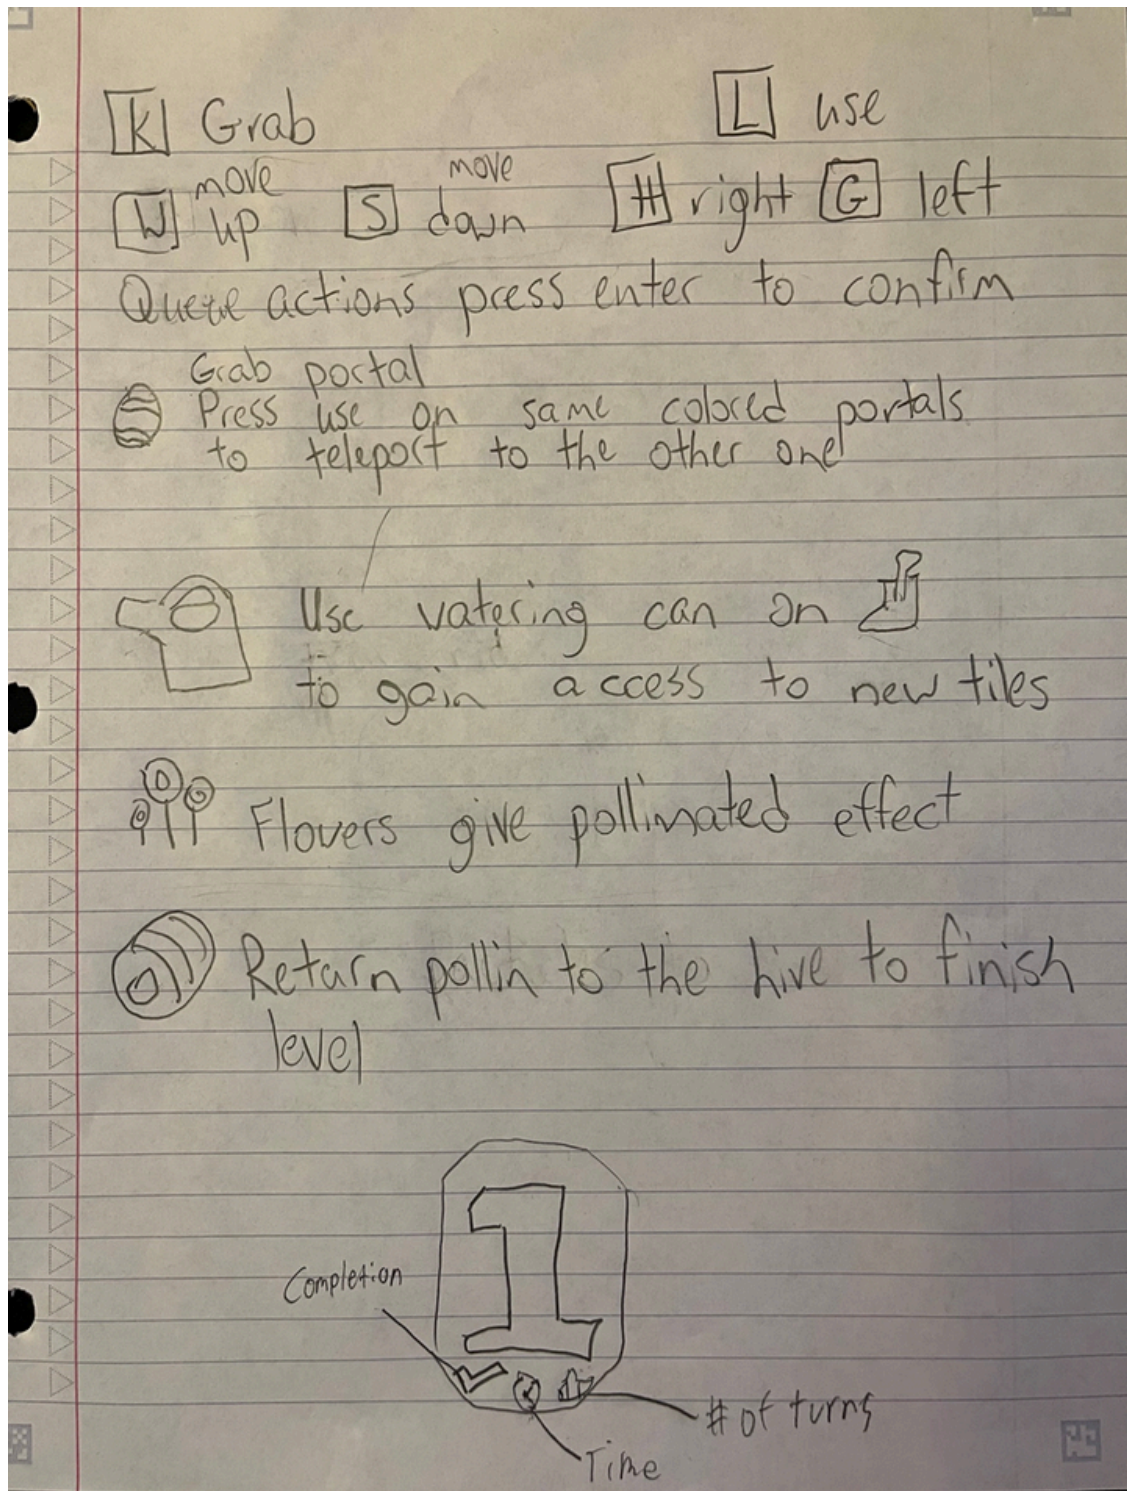 K Grab L use
W move up S move down H right G left
Queue actions press enter to confirm
Grab portal
Press use on same colored portals
to teleport to the other one
Use vatering can on
to gain access to new tiles
Flovers give pollinated effect
Return pollin to the hive to finish
level
1
Completion
# of turns
Time